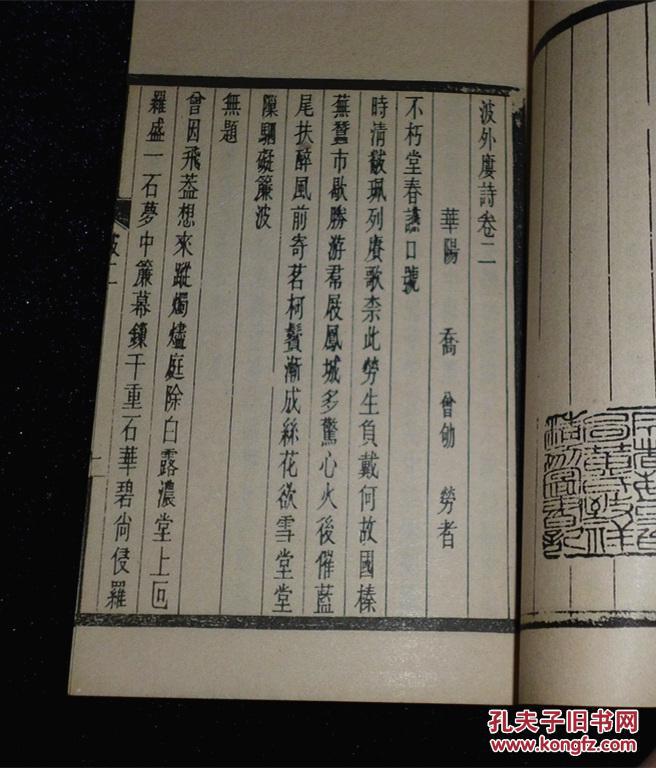 波外廔詩卷二
華陽 喬曾劬 勞者
不朽堂春讌口號
時清皷珮列賡歌柰此勞生負戴何故國榛
蕪蠶市歇勝游裙屐鳳城多驚心火後催藍
尾扶醉風前寄茗柯鬢漸成絲花欲雪堂堂
陳駟礙簾波
無題
曾因飛葢想來蹤燭燼庭除白露濃堂上叵
羅盛一石夢中簾幕鏁千重石華碧尚侵羅
波二
一
孔夫子旧书网
www.kongfz.com